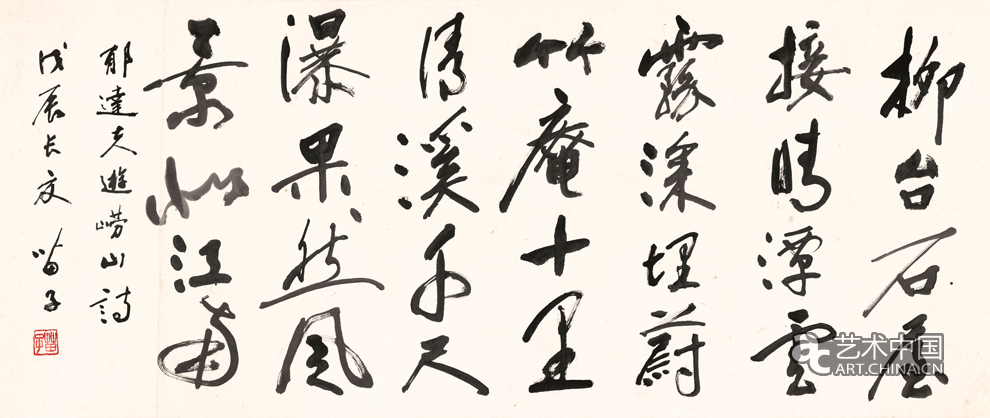 柳台石屋
接晴潭雲
霧深埋蔚
竹庵十里
清溪千尺
瀑果然風
景似江南
郁達夫遊嶗山詩
戊辰长夏 苗子
艺术中国
ART.CHINA.CN